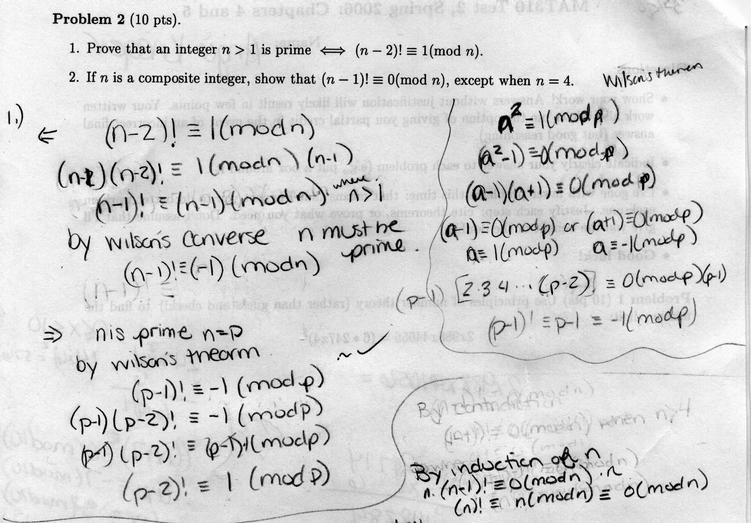 Problem 2 (10 pts).
1. Prove that an integer n > 1 is prime ⟺ (n − 2)! ≡ 1(mod n).
2. If n is a composite integer, show that (n − 1)! ≡ 0(mod n), except when n = 4.
1.)
⇐ (n-2)! ≡ 1(mod n)
(n-1)(n-2)! ≡ 1(mod n)(n-1)
(n-1)! ≡ (n-1)(mod n) where n>1
by wilson's converse n must be prime.
(n-1)! ≡ (-1)(mod n)
⇒ n is prime n=p
by wilson's theorm
(p-1)! ≡ -1 (mod p)
(p-1)(p-2)! ≡ -1 (mod p)
(p-1)(p-2)! ≡ (p-1)(mod p)
(p-2)! ≡ 1 (mod p)
~ ✓
a² ≡ 1(mod p)
(a²-1) ≡ 0(mod p)
(a-1)(a+1) ≡ 0(mod p)
(a-1) ≡ 0(mod p) or (a+1) ≡ 0(mod p)
a ≡ 1(mod p) a ≡ -1(mod p)
(p-1) [2·3·4 ... (p-2)] ≡ 0(mod p)(p-1)
(p-1)! ≡ p-1 ≡ -1(mod p)
By contradiction
when n>4
By induction of n
n·(n-1)! ≡ 0(mod n)·n
(n)! ≡ n(mod n) ≡ 0(mod n)